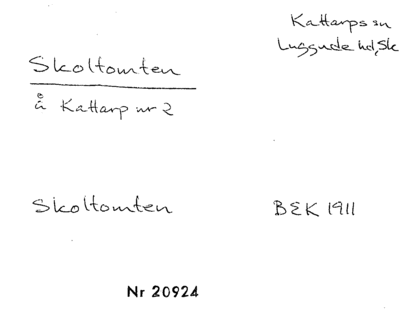 Kattarps sn
Luggude hd, Sk
Skoltomten
å Kattarp nr 2
Skoltomten
BEK 1911
Nr 20924